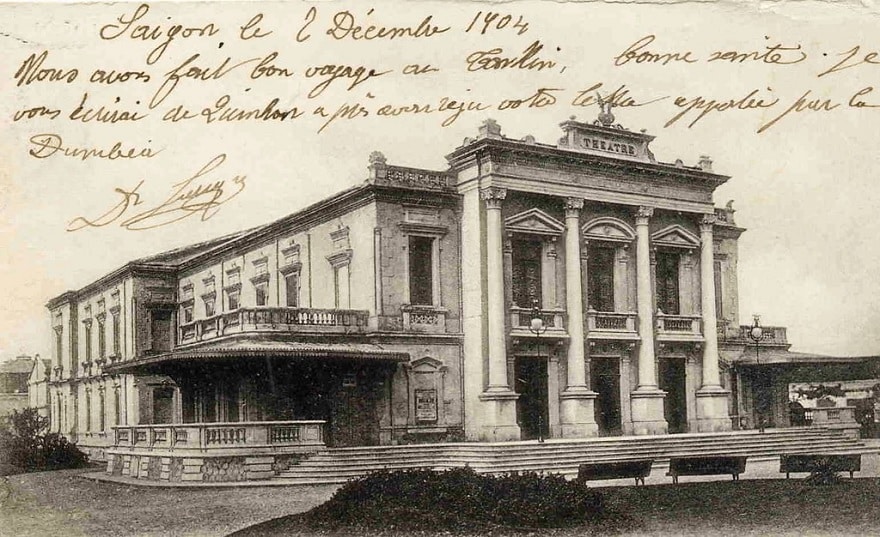 Saigon le 2 Décembre 1904
Nous avons fait bon voyage au Tonkin, bonne santé. Je
vous écrirai de Quinhon après avoir reçu votre lettre apportée par la
Dumbea
Dr
THEATRE